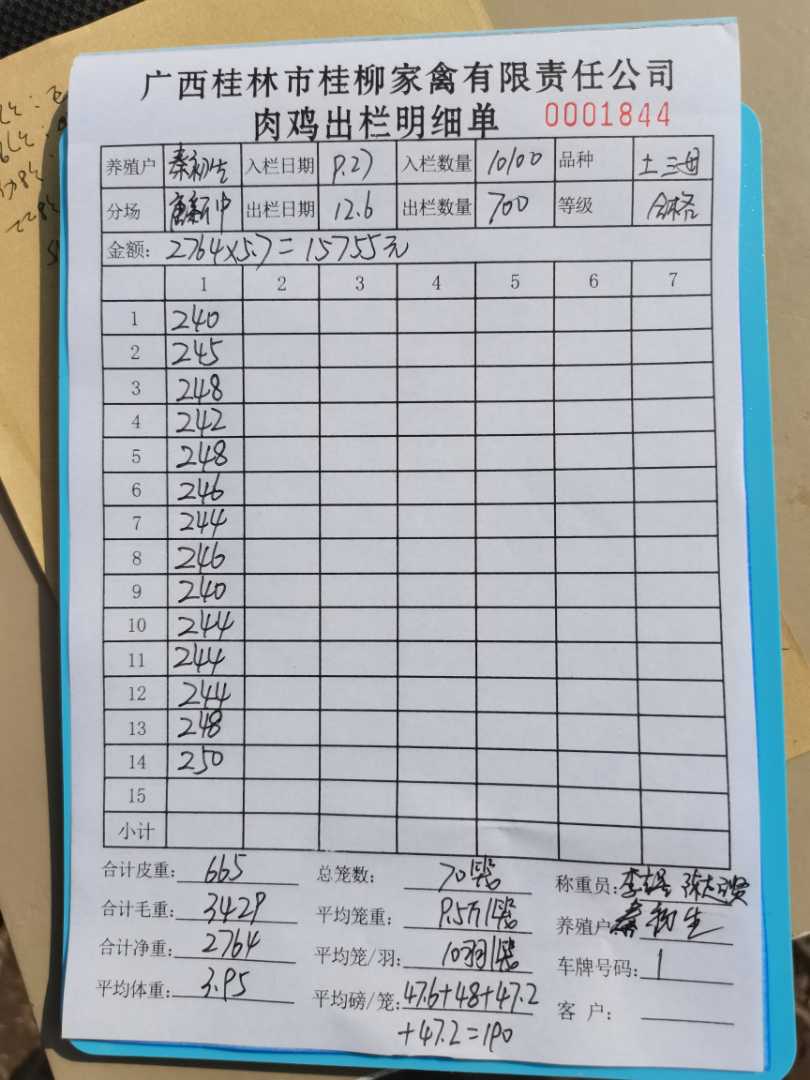 广西桂林市桂柳家禽有限责任公司
肉鸡出栏明细单 0001844
养殖户 秦初生 入栏日期 9.27 入栏数量 10100 品种 土三母
分场 唐新中 出栏日期 12.6 出栏数量 700 等级 合格
金额: 2764×5.7=15755元
1 2 3 4 5 6 7
1 240
2 245
3 248
4 242
5 248
6 246
7 244
8 246
9 240
10 244
11 244
12 244
13 248
14 250
15
小计
合计皮重: 665 总笼数: 70笼 称重员:
合计毛重: 3429 平均笼重: 9.5斤/笼 养殖户 秦初生
合计净重: 2764 平均笼/羽: 10羽/笼 车牌号码: 1
平均体重: 3.95 平均磅/笼: 47.6+48+47.2 客 户:
+47.2=190